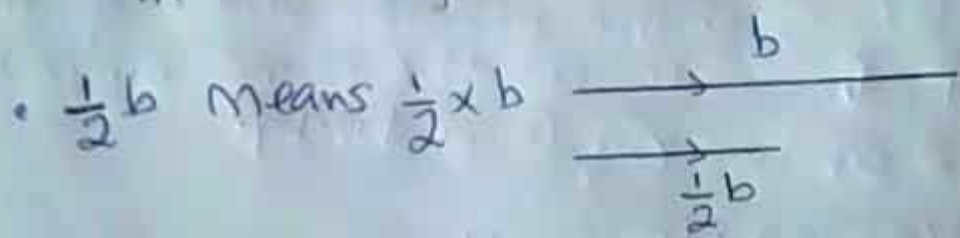 b
• ½b means ½ × b
½b